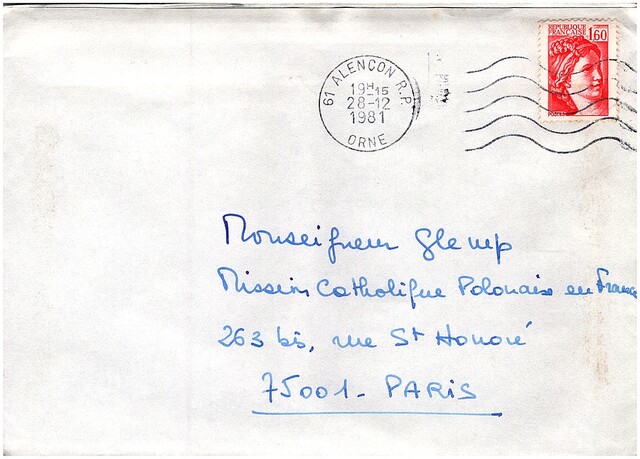 RÉPUBLIQUE
FRANÇAISE 1,60
POSTES
61 ALENCON R.P.
19H15
28-12
1981
ORNE
Monseigneur Glemp
Mission Catholique Polonaise en France
263 bis, rue St Honoré
75001- PARIS